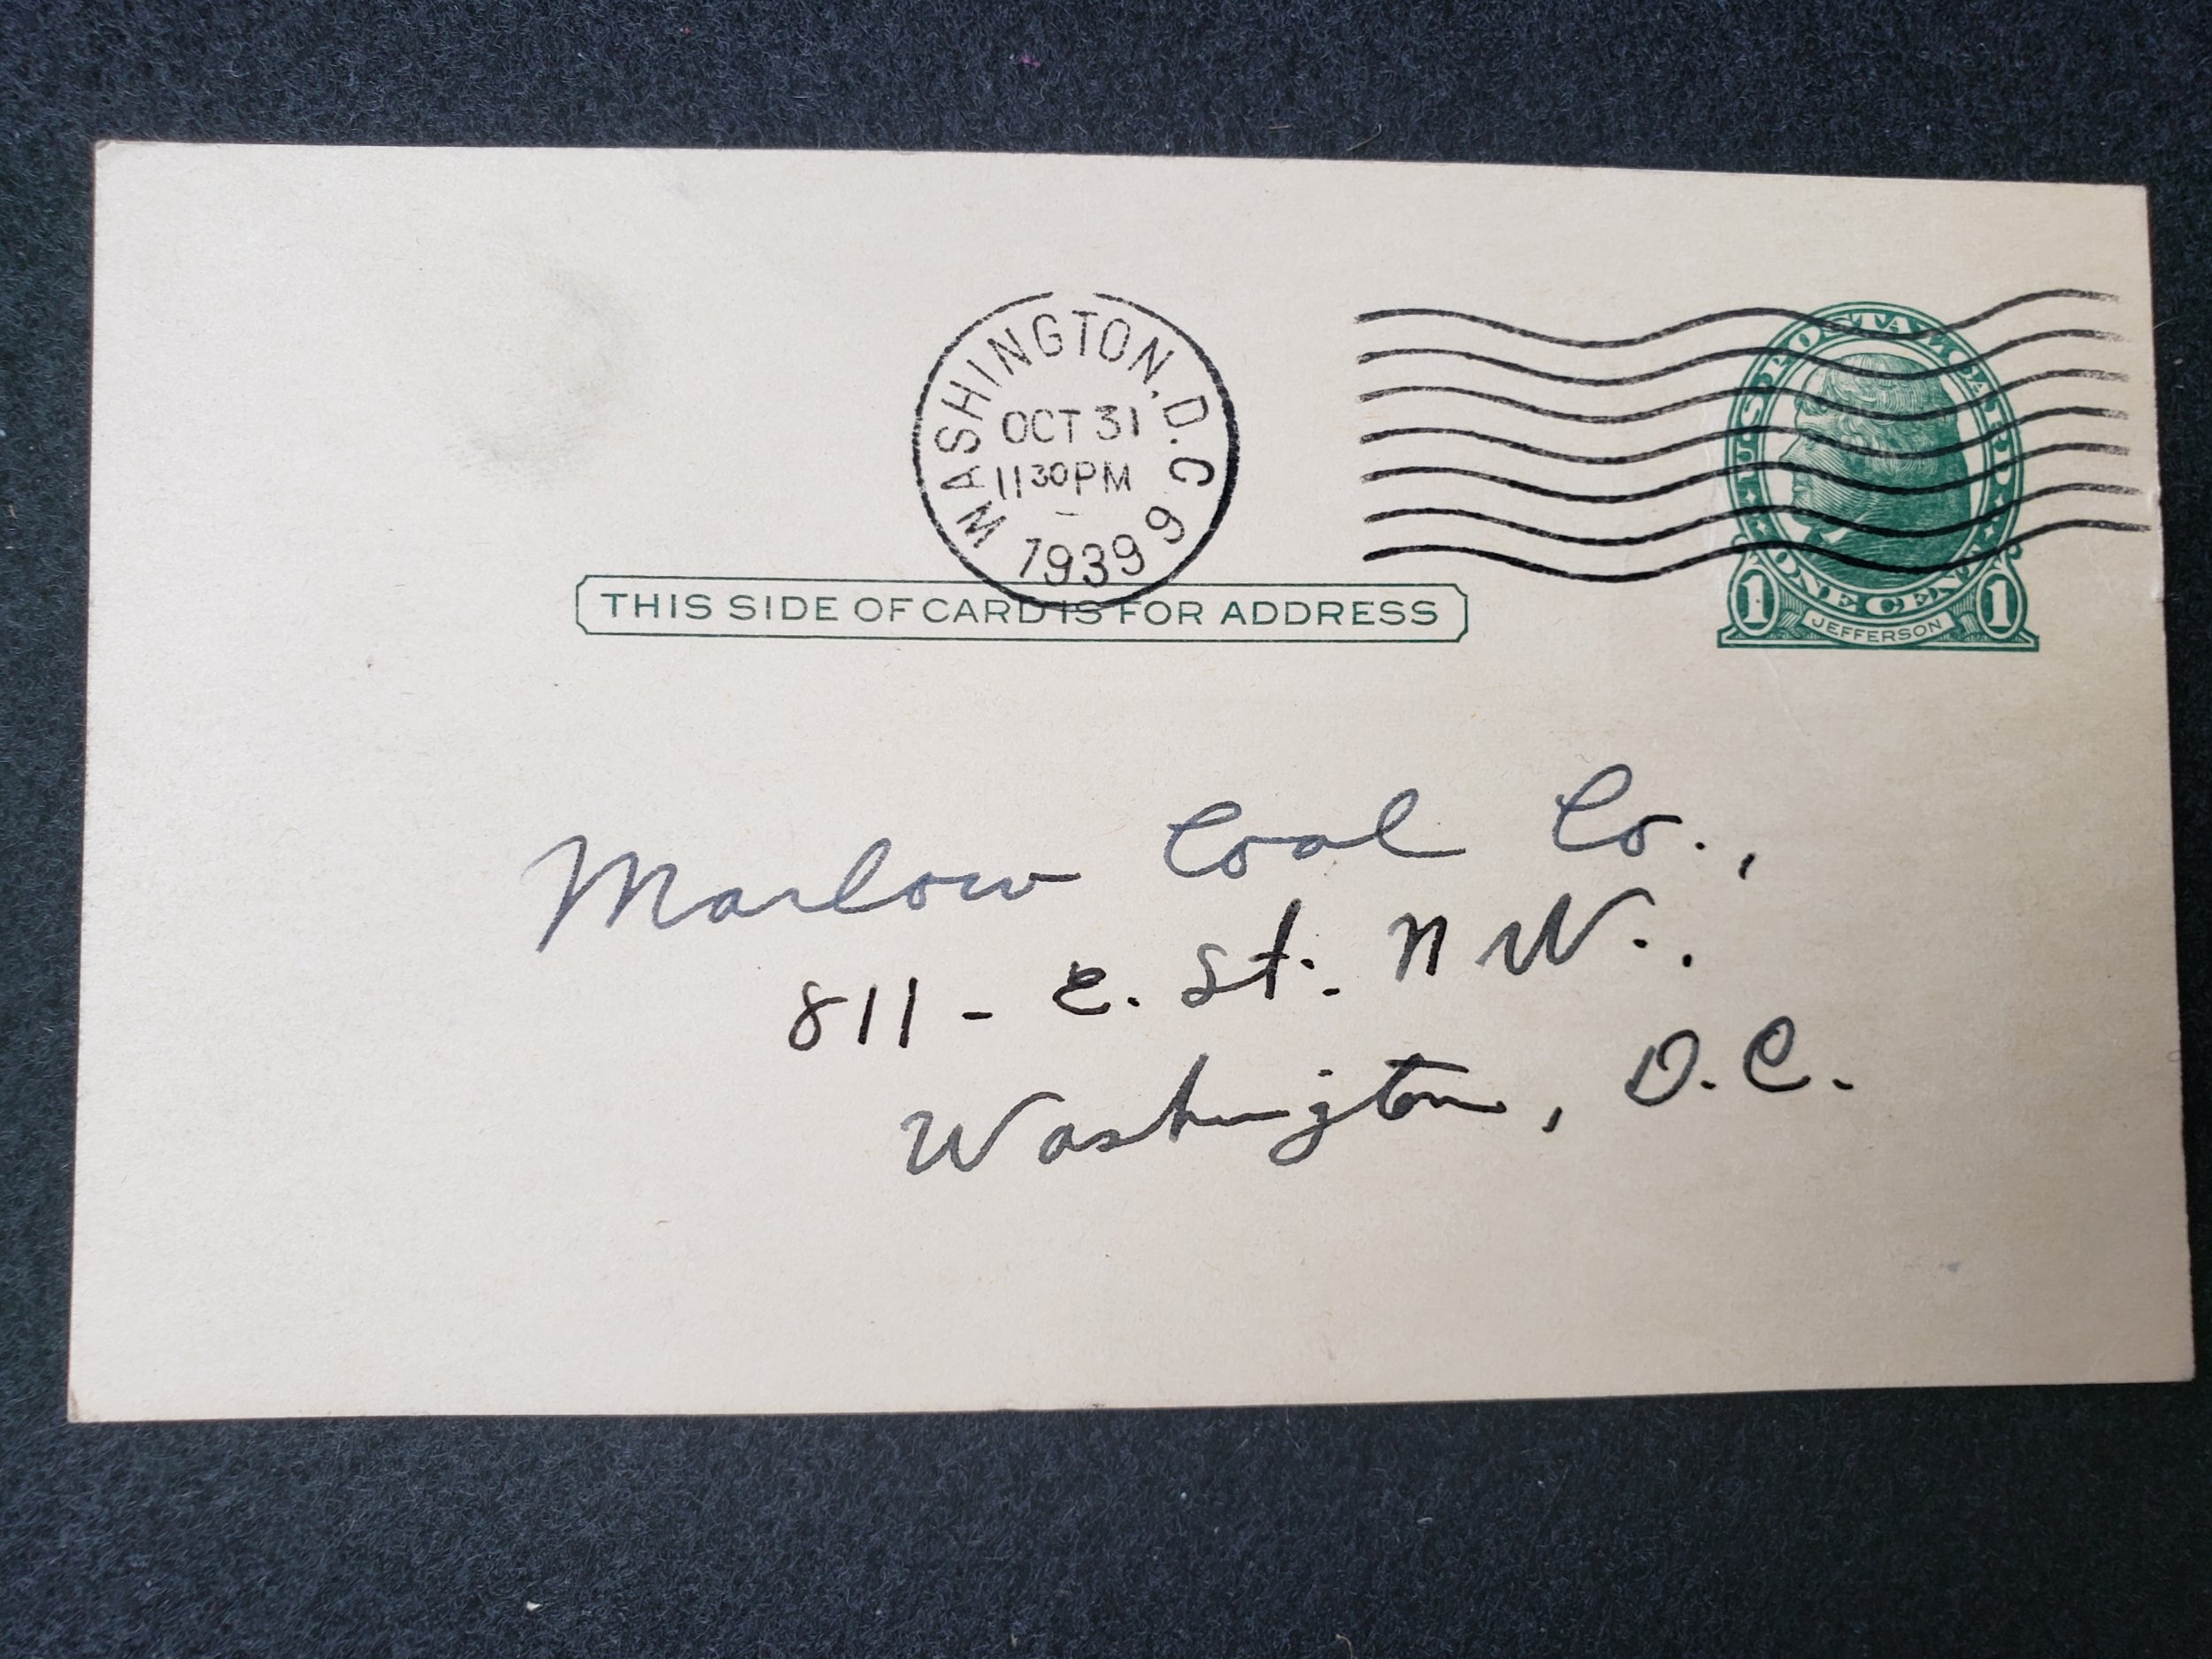 WASHINGTON, D.C.
OCT 31
11 30 PM
1939 9
U.S. POSTAL CARD
ONE CENT
1 JEFFERSON 1
THIS SIDE OF CARD IS FOR ADDRESS
Marlow Coal Co.,
811 - E. St. N W.,
Washington, D.C.